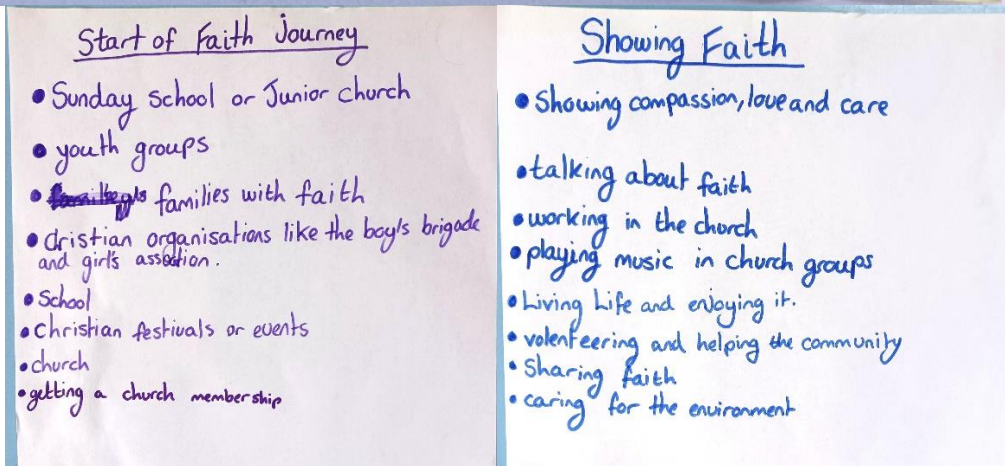 Start of Faith Journey
• Sunday School or Junior church
• youth groups
• families with faith
• Cristian organisations like the boy's brigade
and girl's assotion.
• School
• Christian festivals or events
• church
• getting a church membership
Showing Faith
• Showing compassion, love and care
• talking about faith
• working in the church
• playing music in church groups
• Living Life and enjoying it.
• volenteering and helping the community
• Sharing faith
• caring for the environment